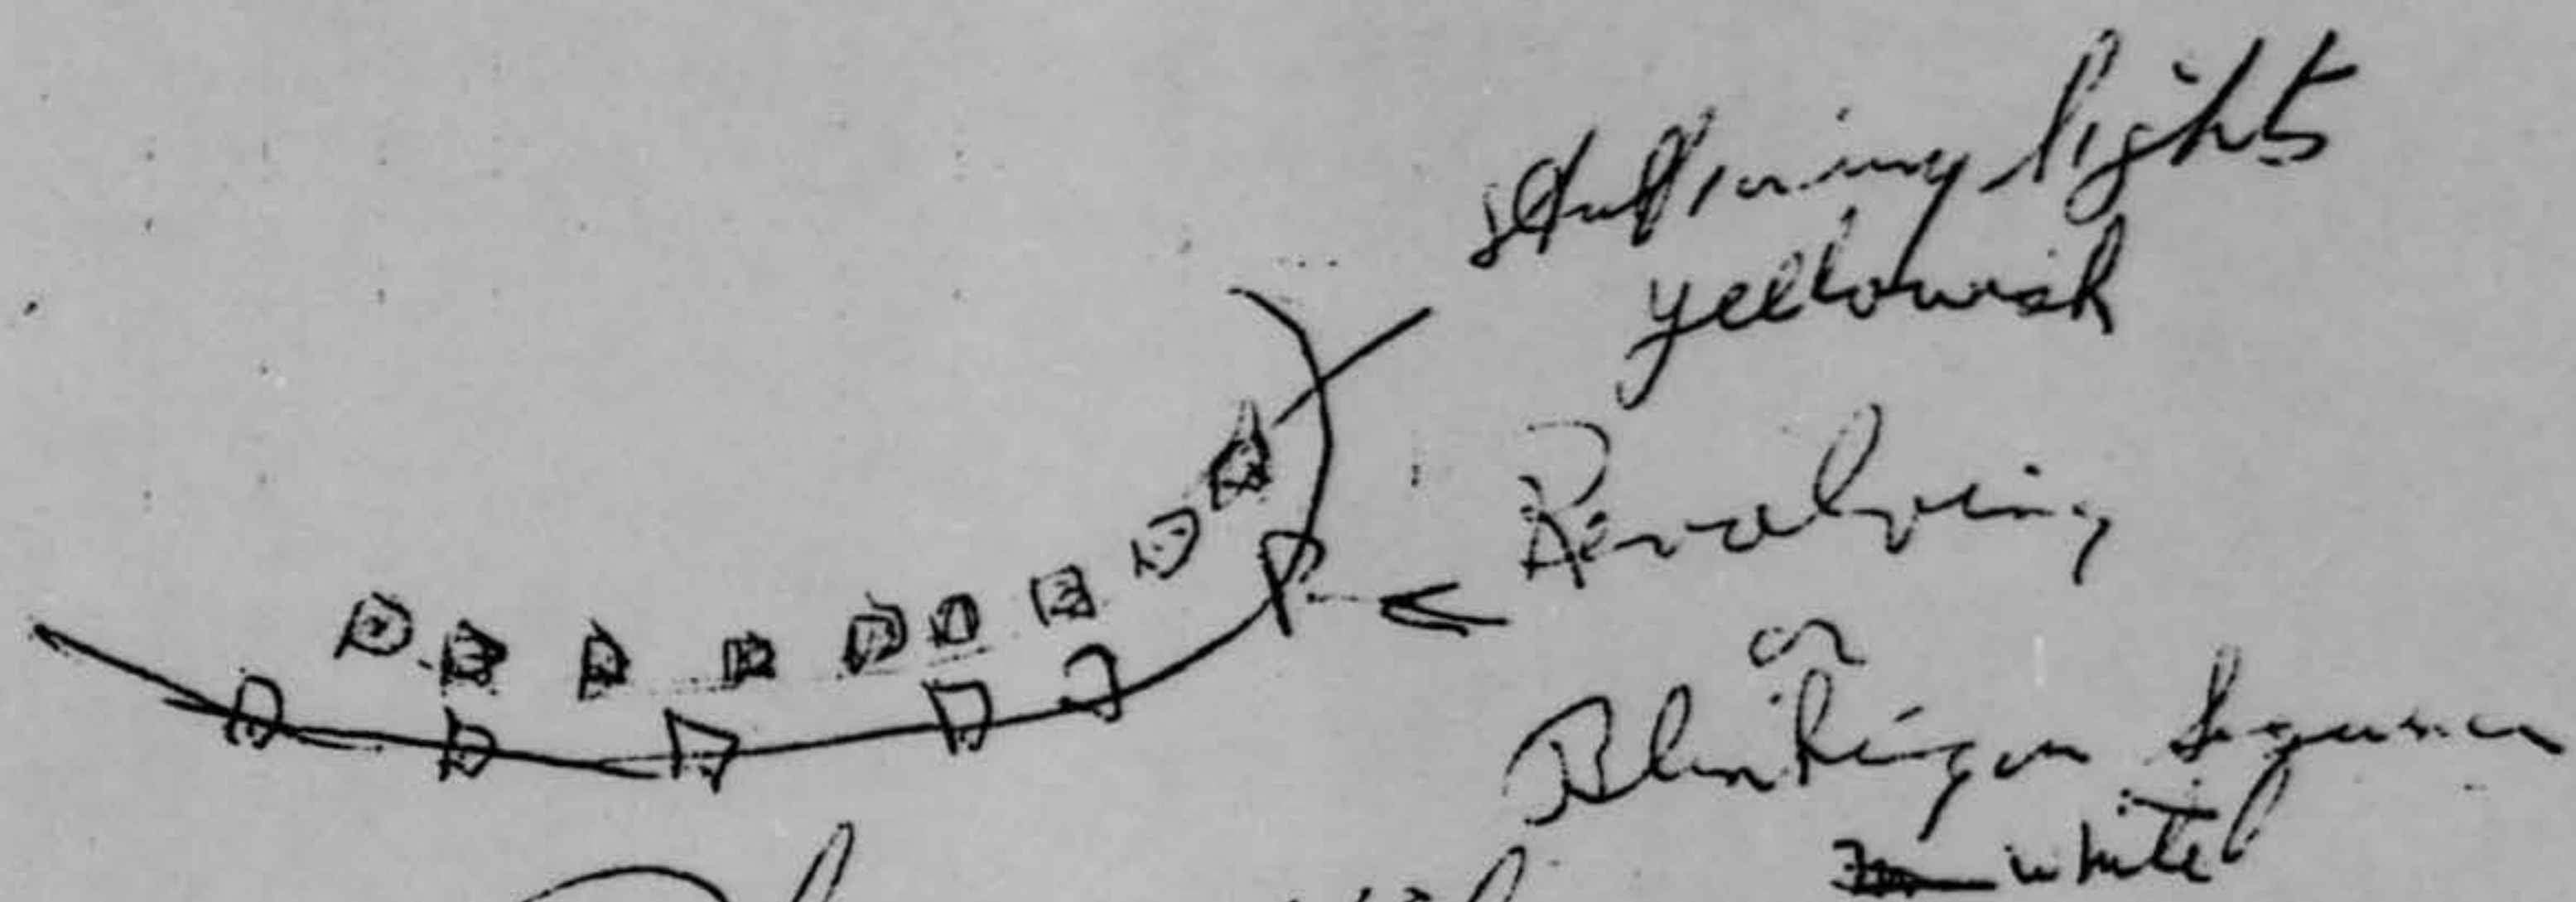 lights
yellowish
Revolving
or
Blinking in Sequence
white